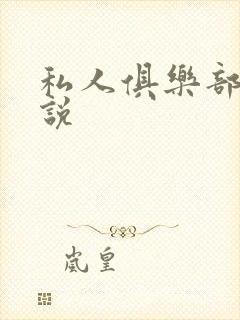 私人俱樂部
説
嵐皇